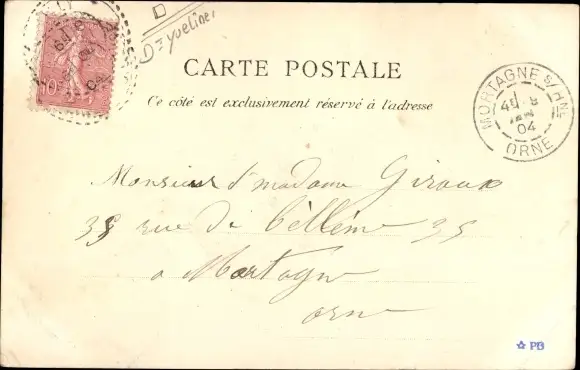 D=Yvelines
CARTE POSTALE
Ce côté est exclusivement réservé à l'adresse
MORTAGNE S/HNE
8
04
ORNE
10c
Monsieur & madame Giroux
35 rue de Bellême 35
a Mortagne
orne
☆ PB